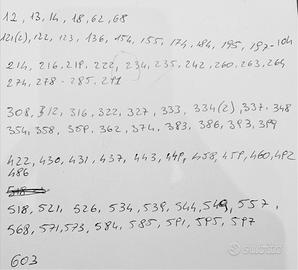 12, 13, 14, 18, 62, 68
121(2), 122, 123, 136, 154, 155, 174, 184, 195, 197-104
214, 216, 219, 222, 234, 235, 242, 260, 263, 264
274, 278-285, 291
308, 312, 316, 322, 327, 333, 334(2), 337, 348
354, 358, 359, 362, 374, 383, 386, 393, 399
422, 430, 431, 437, 443, 449, 458, 459, 460, 492
486
518, 521, 526, 534, 539, 544, 549, 557,
568, 571, 573, 584, 585, 591, 595, 597
603
subito